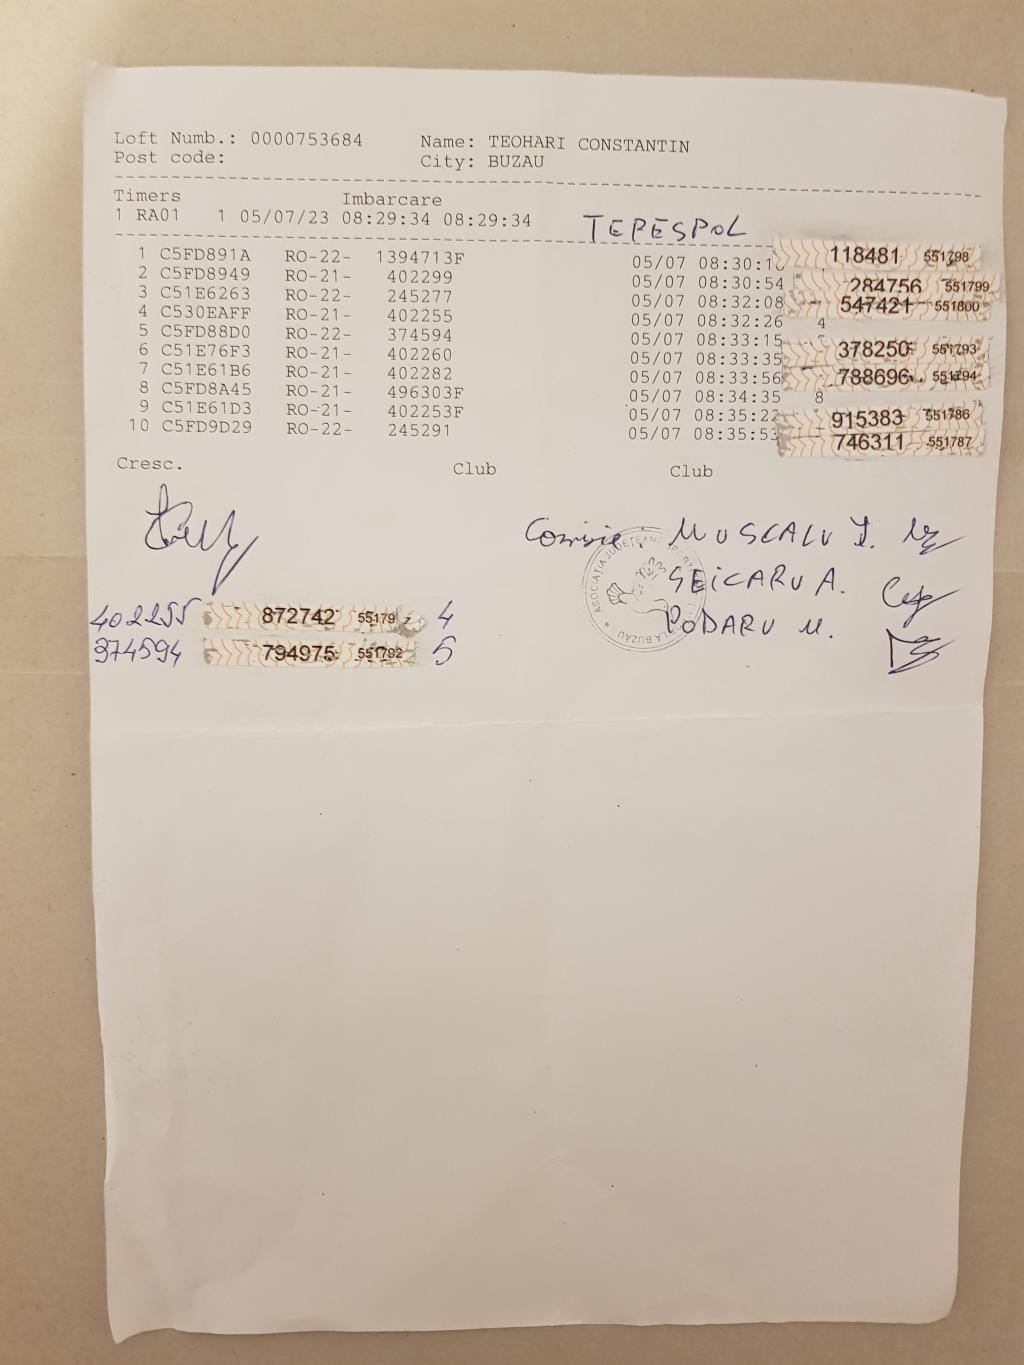 Loft Numb.: 0000753684 Name: TEOHARI CONSTANTIN
Post code: City: BUZAU
Timers Imbarcare
1 RA01 1 05/07/23 08:29:34 08:29:34 TEPESPOL
1 C5FD891A RO-22- 1394713F 05/07 08:30:10 118481 551798
2 C5FD8949 RO-21- 402299 05/07 08:30:54 284756 551799
3 C51E6263 RO-22- 245277 05/07 08:32:08 547421 551800
4 C530EAFF RO-21- 402255 05/07 08:32:26 4
5 C5FD88D0 RO-22- 374594 05/07 08:33:15
6 C51E76F3 RO-21- 402260 05/07 08:33:35 378250 551793
7 C51E61B6 RO-21- 402282 05/07 08:33:56 788696 551794
8 C5FD8A45 RO-21- 496303F 05/07 08:34:35 8
9 C51E61D3 RO-21- 402253F 05/07 08:35:22 915383 551786
10 C5FD9D29 RO-22- 245291 05/07 08:35:53 746311 551787
Cresc. Club Club
Comisie MUSCALU I.
SEICARU A.
PODARU M.
ASOCIATIA JUDETEANA BUZAU
402255 872742 55179 4
374594 794975 551792 5